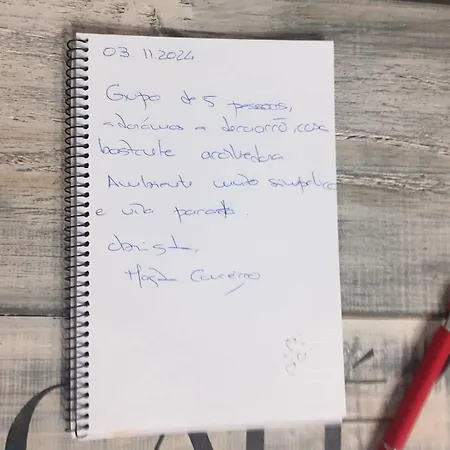 03.11.2024
Grupo de 5 pessoas,
adorámos a decoração, casa
bastante acolhedora
Ambiente muito simpático
e vila